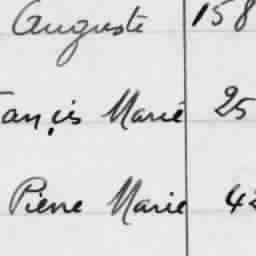 Auguste 158
ançis Marie 25
Pierre Marie 42